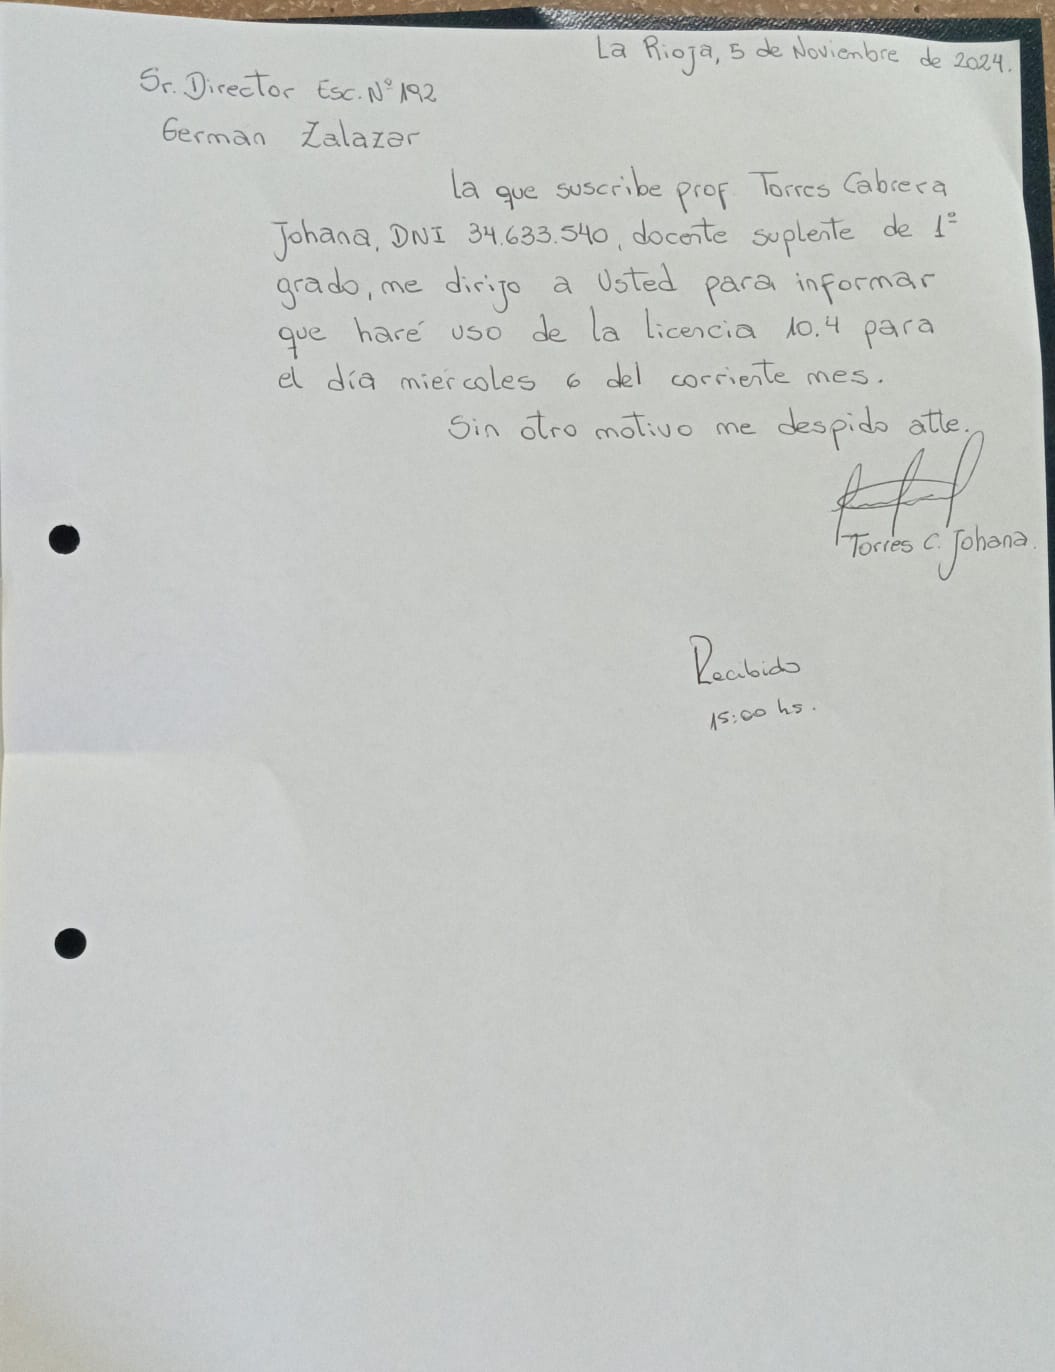 La Rioja, 5 de Noviembre de 2024.
Sr. Director Esc. Nº 192
German Zalazar
la que suscribe prof. Torres Cabrera
Johana, DNI 34.633.540, docente suplente de 1º
grado, me dirijo a Usted para informar
que haré uso de la licencia 10.4 para
el día miercoles 6 del corriente mes.
Sin otro motivo me despido atte.
Torres C. Johana.
Recibido
15:00 hs.